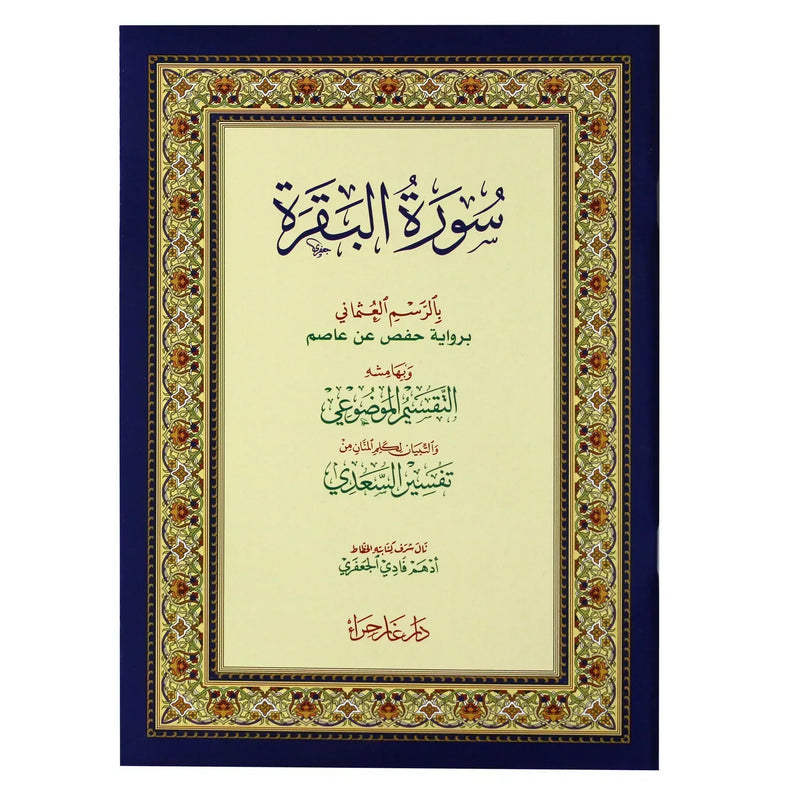 سُورَةُ البَقَرَة
جعفري
بِٱلرَّسْمِ ٱلْعُثْمَاني
برواية حفص عن عاصم
وَبِهَامِشِهِ
التَّقْسِيمُ المَوْضُوعِي
وَالتِّبْيَان لِكَلِمِ المَنَّانِ مِنْ
تَفْسِيرِ السَّعْدِي
نَالَ شَرَفَ كِتَابَتِهِ الخَطَّاط
أَدْهَم فَادِي الجَعْفَرِي
دَار غَار حِرَاء